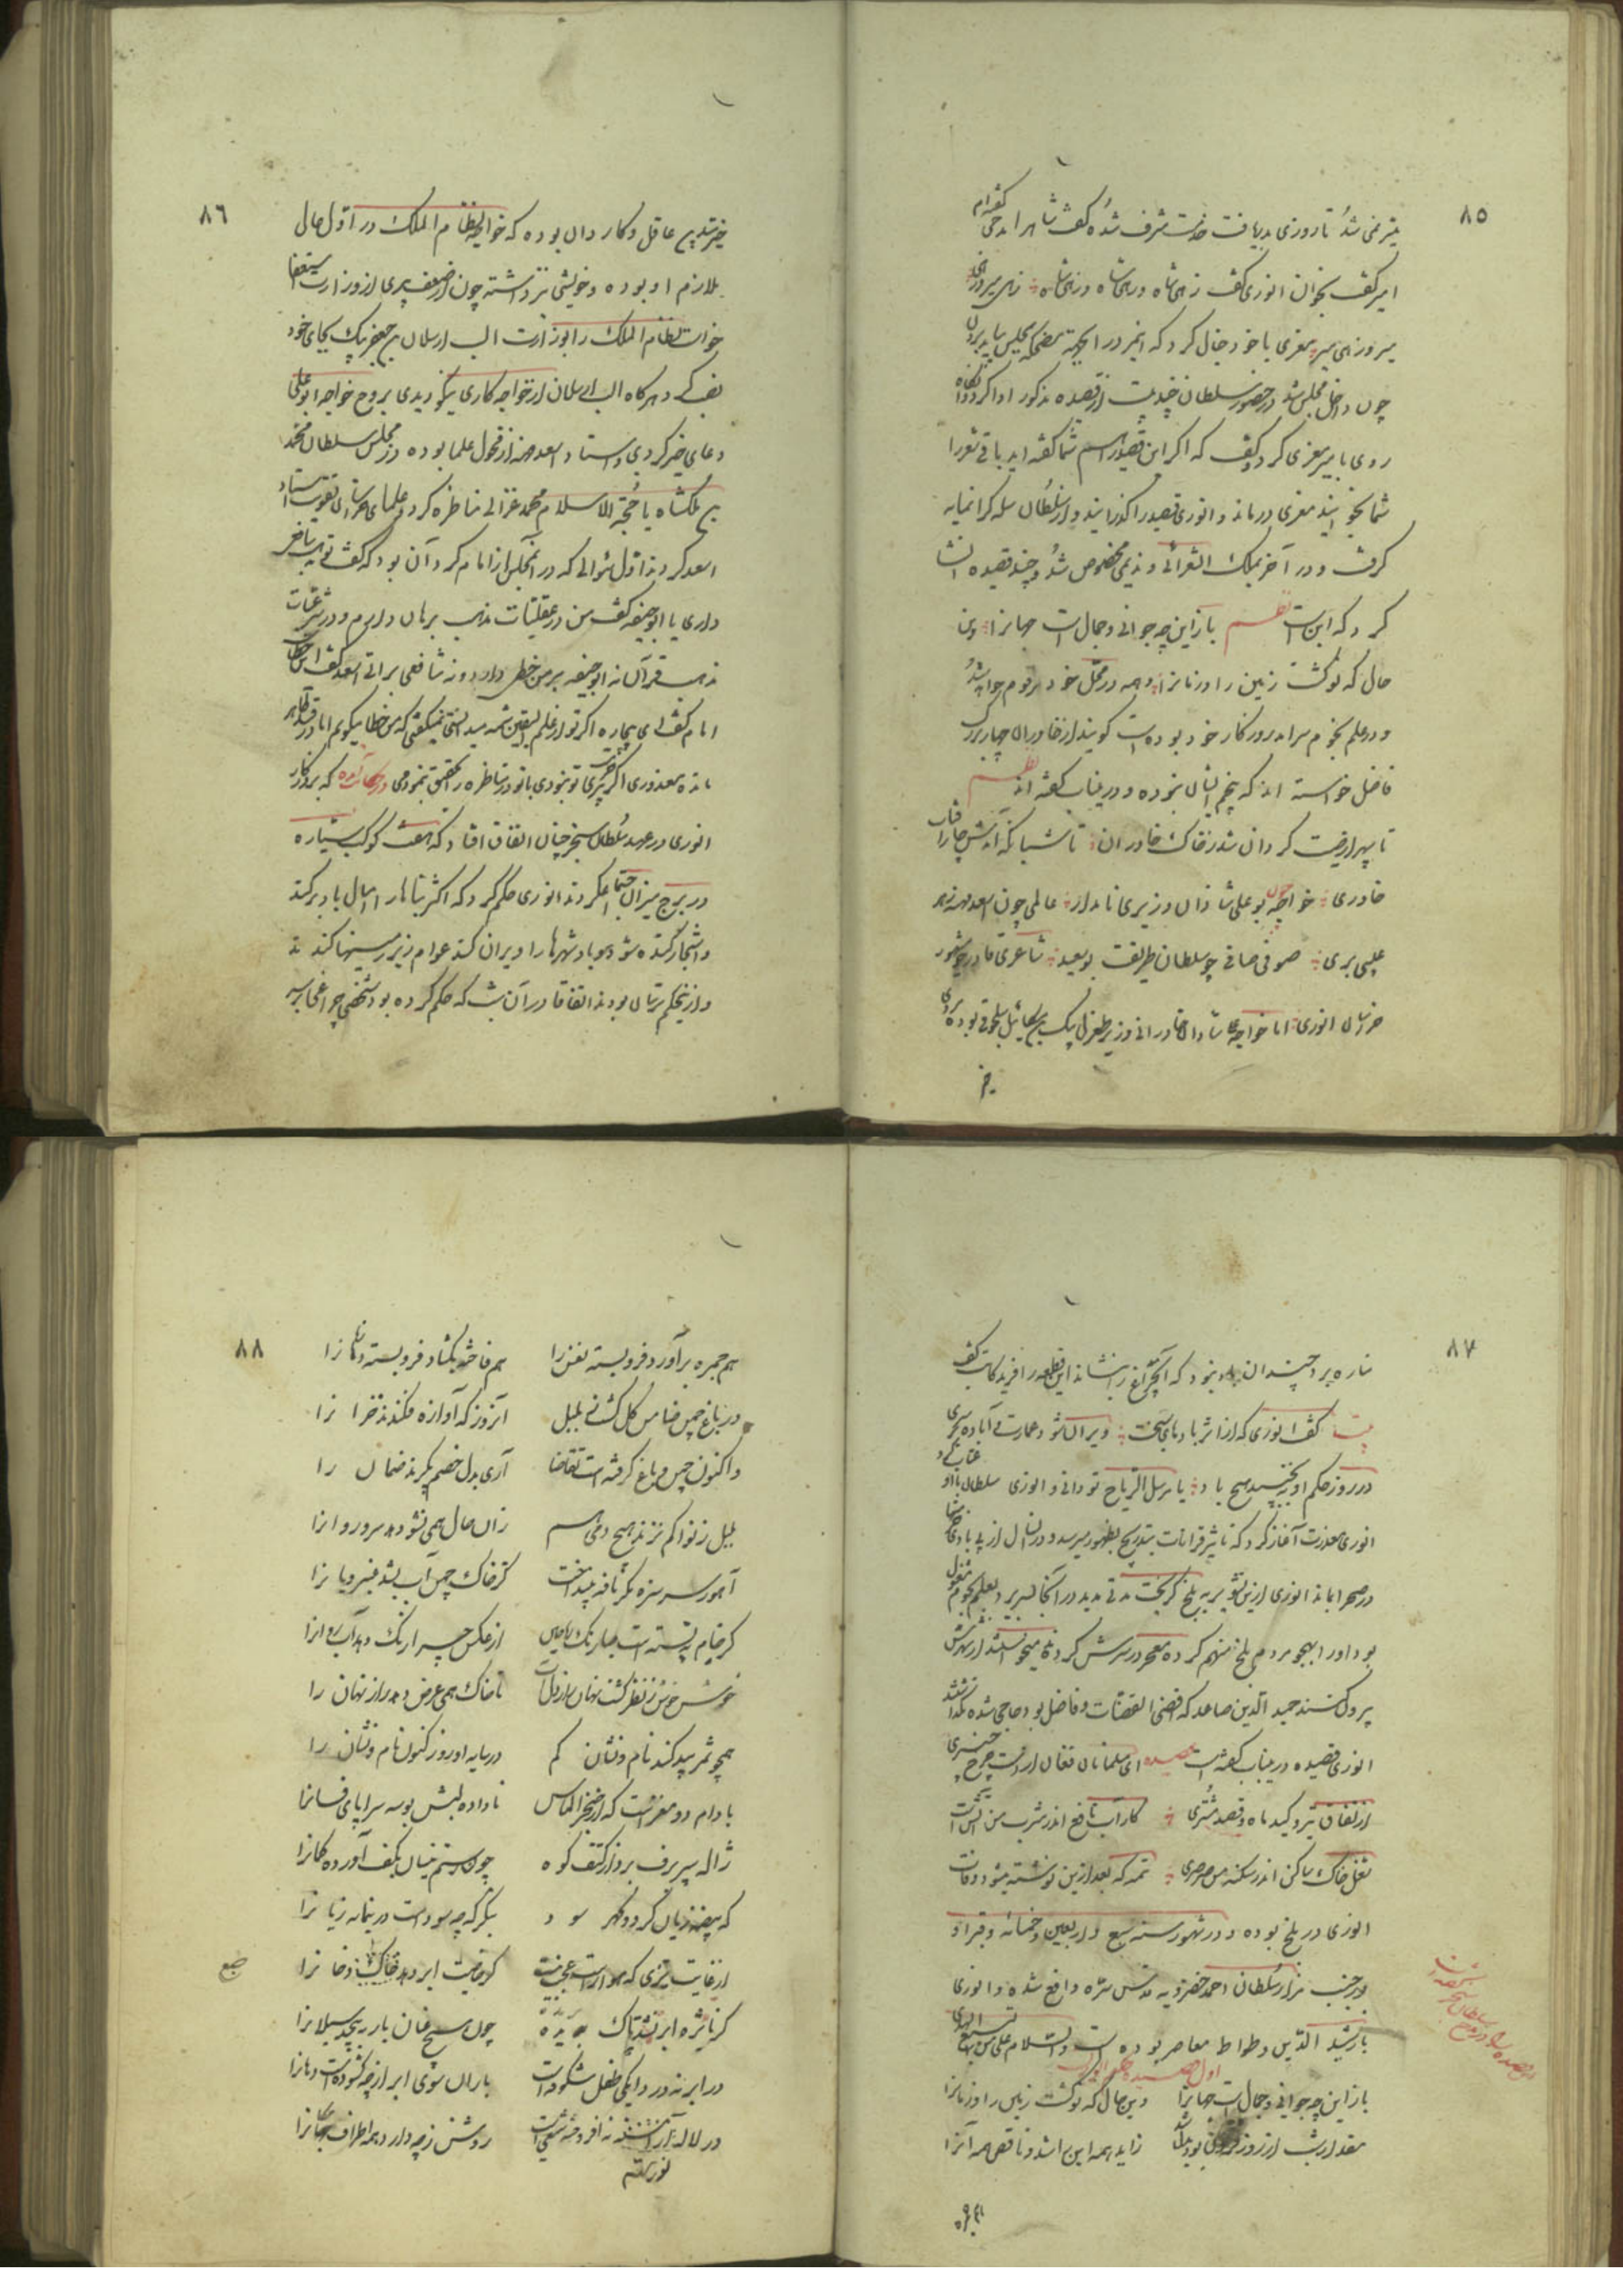 ٨٥
میسر نمی شد تا روزی بدریافت خدمت مشرف شده گفت شاه را مدحی گفته ام
امیر گفت بخوان انوری گفت زهی شاه و زهی شاه و زهی شاه زهی میر و زهی
میر و زهی میر معزی با خود خیال کرد که
چون داخل مجلس شد در حضور سلطان چند بیت از قصیده مذکور ادا کرد و آنگاه
روی با میر معزی کرد و گفت که اگر این قصیده را اسم شما گفته اید باقی شعر را
شما بخوانید معزی درماند و انوری قصیده را گذرانید و از سلطان صله گرانمایه
گرفت و در آخر بملک الشعرائی و ندیمی مخصوص شد و چند قصیده انشا
کرد که این است نظم باز این چه جوانی و جمال است جهانرا وین
حال که نو گشت زمین را و زمانرا
و در علم نجوم سرآمد روزگار خود بوده است گویند از خاوران چهار بزرگ
فاضل خواسته اند که پنجم ایشان نبوده و درین باب گفته اند نظم
تا سپهر از صیت گردان شد ز خاک خاوران تا شبانگه آمدش چار آفتاب
خاوری خواجه چون بو علی شادان وزیری نامدار عالمی چون اسعد مهنه ز هر
علمی بری صوفی صافی چو سلطان طریقت بوسعید شاعری قادر چو مشهور
خراسان انوری اما خواجه علی شادان خاورانی وزیر طغرل بیک بن میکائیل سلجوقی بوده مردی
خیر
٨٦
خیر تدبیر عاقل و کاردان بوده که خواجه نظام الملک در اول حال
ملازم او بوده و خویشی نیز داشته چون از ضعف پیری از وزارت استعفا
خواست نظام الملک را بوزارت الب ارسلان بن جعفر بیک بجای خود
نصب کرد هرگاه الب ارسلان از خواجه کاری نیکو دیدی بروح خواجه ابو علی
دعای خیر کردی و استاد اسعد مهنه از فحول علما بوده و در مجلس سلطان محمد
بن ملکشاه با حجة الاسلام محمد غزالی مناظره کرد و علمای خراسان تقویت استاد
اسعد کردند اول سؤالی که در آن مجلس از امام کرد آن بود که گفت تو مذهب شافعی
داری یا ابو حنیفه گفت من در عقلیات مذهب برهان دارم و در شرعیات
مذهب قرآن نه ابو حنیفه بر من خطی دارد و نه شافعی براتی اسعد گفت این خطاست
امام گفت ای بیچاره اگر تو از علم الیقین شمه میدانستی نمیگفتی که من خطا میگویم اما در قید ظاهر
مانده معذوری اگر حرمت پیری تو نبودی با تو در مناظره راه تحقیق نمودمی در حکایات آمده که بروزگار
انوری در عهد سلطان سنجر چنان اتفاق افتاد که هفت کوکب سیاره
در برج میزان اجتماع کردند انوری حکم کرد که اکثر بناها را امسال باد برکند
و اشجار کنده شود و باد شهرها را ویران کند عوام زیر زمینها کندند
و ازین حکم ترسان بودند اتفاقا در آن شب که حکم کرده بود شخصی چراغی بر سر
٨٧
مناره برد چندان باد نبود که آن چراغ را بنشاند این قطعه را فرید کاتب گفت
بیت گفت انوری که از اثر بادهای سخت ویران شود عمارت و آباده سنجری
در روز حکم او نجنبید هیچ باد یا مرسل الریاح تو دانی و انوری سلطان با او عتاب کرد
انوری معذرت آغاز کرد که تاثیر قرانات بتدریج بظهور میرسد
در صحرا بماند انوری ازین تشویر به بلخ گریخت مدتی مدید در آنجا بسر برد و بعلم نجوم مشغول
بود و او را بهجو مردم بلخ متهم کردند معجر در سرش کردند و میخواستند از شهرش
بیرون کنند حمید الدین صاعد که اقضی القضات و فاضل بود حامی شده نگذاشتند
انوری قصیده درین باب گفته است قصیده ای مسلمانان فغان از دست چرخ چنبری
از نفاق تیر و کید ماه و قصد مشتری کار آب نافع اندر مشرب من آتش است
شغل خاک ساکن اندر سکنه من صرصری تتمه که بعد ازین نوشته میشود وفات
انوری در بلخ بوده و در شهور سنه سبع و اربعین و خمسمائه و قبر او
در جنب مزار سلطان احمد خضرویه قدس سره واقع شده و انوری
با رشید الدین وطواط معاصر بوده است والسلام علی من اتبع الهدی
باز این چه جوانی و جمال است جهانرا وین حال که نو گشت زمین را و زمانرا
مقدار شب از روز فزون بود بدل شد زاید همه این را شد و ناقص همه آنرا
هم جمره
٨٨
هم جمره برآورد فرو بسته نفس را هم فاخته بگشاد فرو بسته زبانرا
در باغ چمن ضامن گل گشت ز بلبل آنروز که آوازه فکندند خزانرا
و اکنون چمن باغ گرفته است تقاضا آری بدل خصم بگیرند ضمان را
بلبل ز نوا کم نزند هیچ دمی هم زان حال همی نشود سرو روانرا
آهو سر سبزه مگر نافه بینداخت کز خاک چمن آب بشد عنبر و بانرا
گر خام نبسته است صبا رنگ ریاحین از عکس چرا رنگ دهد آب روانرا
خوش خوش ز نظر گشت نهان راز دل آب تا خاک همی عرض دهد راز نهان را
همچو ثمر بید کند نام و نشان گم در سایه او روز کنون نام و نشان را
بادام دو مغز است که از خنجر الماس ناداده لبش بوسه سراپای فسانرا
ژاله سپر برف ببرد از کتف کوه چون رستم نیسان بکف آورد کمانرا
که بیضه زیان کرد و گهر سود بنگر که چه سود است درین مایه زیانرا
از غایت تری که هوا راست عجب نیست گر خاصیت ابر دهد خاک دخانرا
گر نایژه ابر نشد پاک بریده چون هیچ عنان باز نپیچد سیلانرا
در ابر نه در دایگی طفل شکوفه است باران سوی ابر از چه گشوده است دهانرا
در لاله نورسته نه افروخته شمعیست روشن ز چه دارد همه اطراف مکانرا